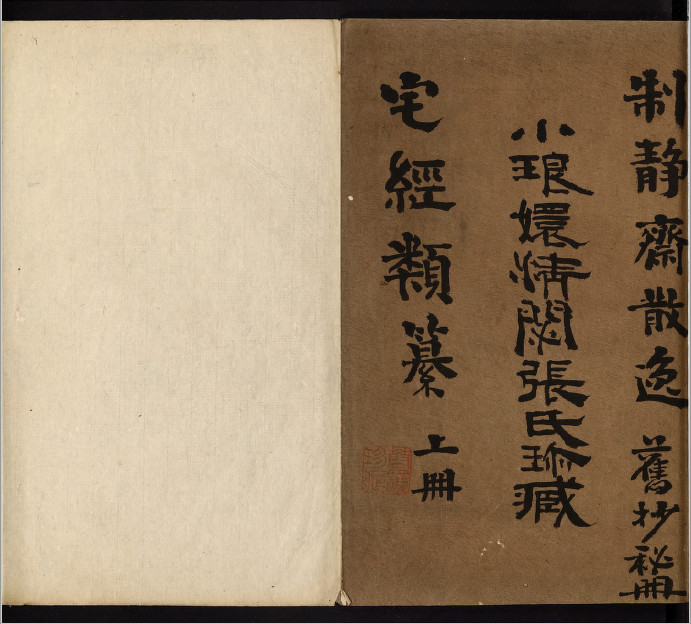 制静齋散逸 舊抄秘冊
小琅嬛清閟張氏珎臧
宅經類纂 上冊